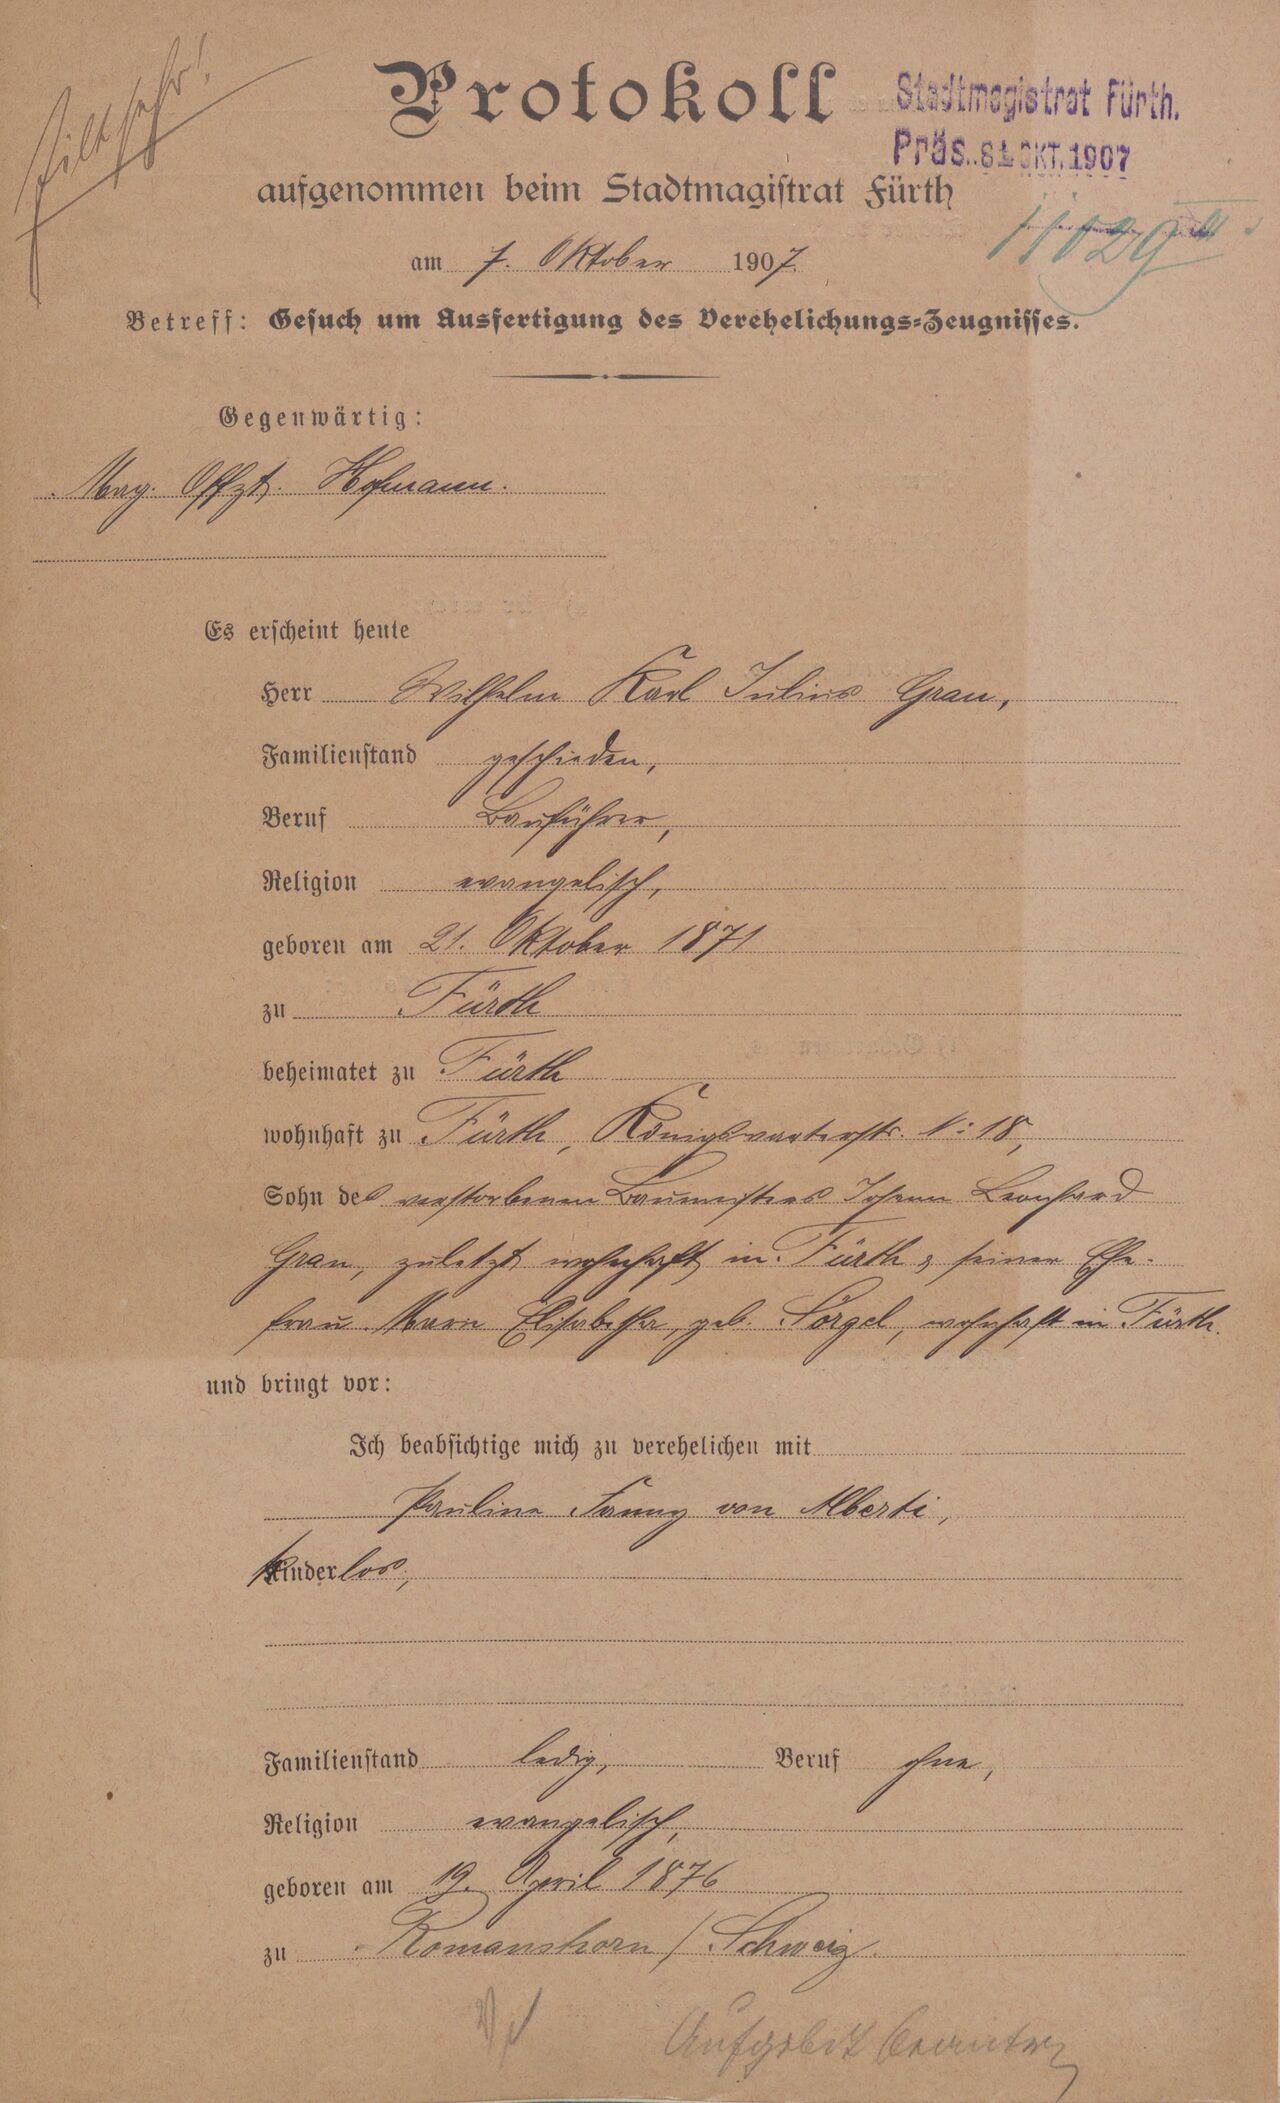 Eilt sehr!
Protokoll
Stadtmagistrat Fürth.
Präs. 8. OKT. 1907
aufgenommen beim Stadtmagistrat Fürth
11029
am 7. Oktober 1907.
Betreff: Gesuch um Ausfertigung des Verehelichungs-Zeugnisses.
Gegenwärtig:
Mag. Offzt. Hofmann.
Es erscheint heute
Herr Wilhelm Karl Julius Grau,
Familienstand geschieden,
Beruf Bauführer,
Religion evangelisch,
geboren am 21. Oktober 1871
zu Fürth
beheimatet zu Fürth
wohnhaft zu Fürth, Königswarterstr. N: 18,
Sohn des verstorbenen Baumeisters Johann Leonhard
Grau, zuletzt wohnhaft in Fürth & seiner Ehe-
frau Marie Elisabetha, geb. Sörgel, wohnhaft in Fürth.
und bringt vor:
Ich beabsichtige mich zu verehelichen mit
Pauline Fanny von Alberti,
kinderlos,
Familienstand ledig, Beruf ohne,
Religion evangelisch,
geboren am 19. April 1876
zu Romanshorn / Schweiz.
Aufgebot